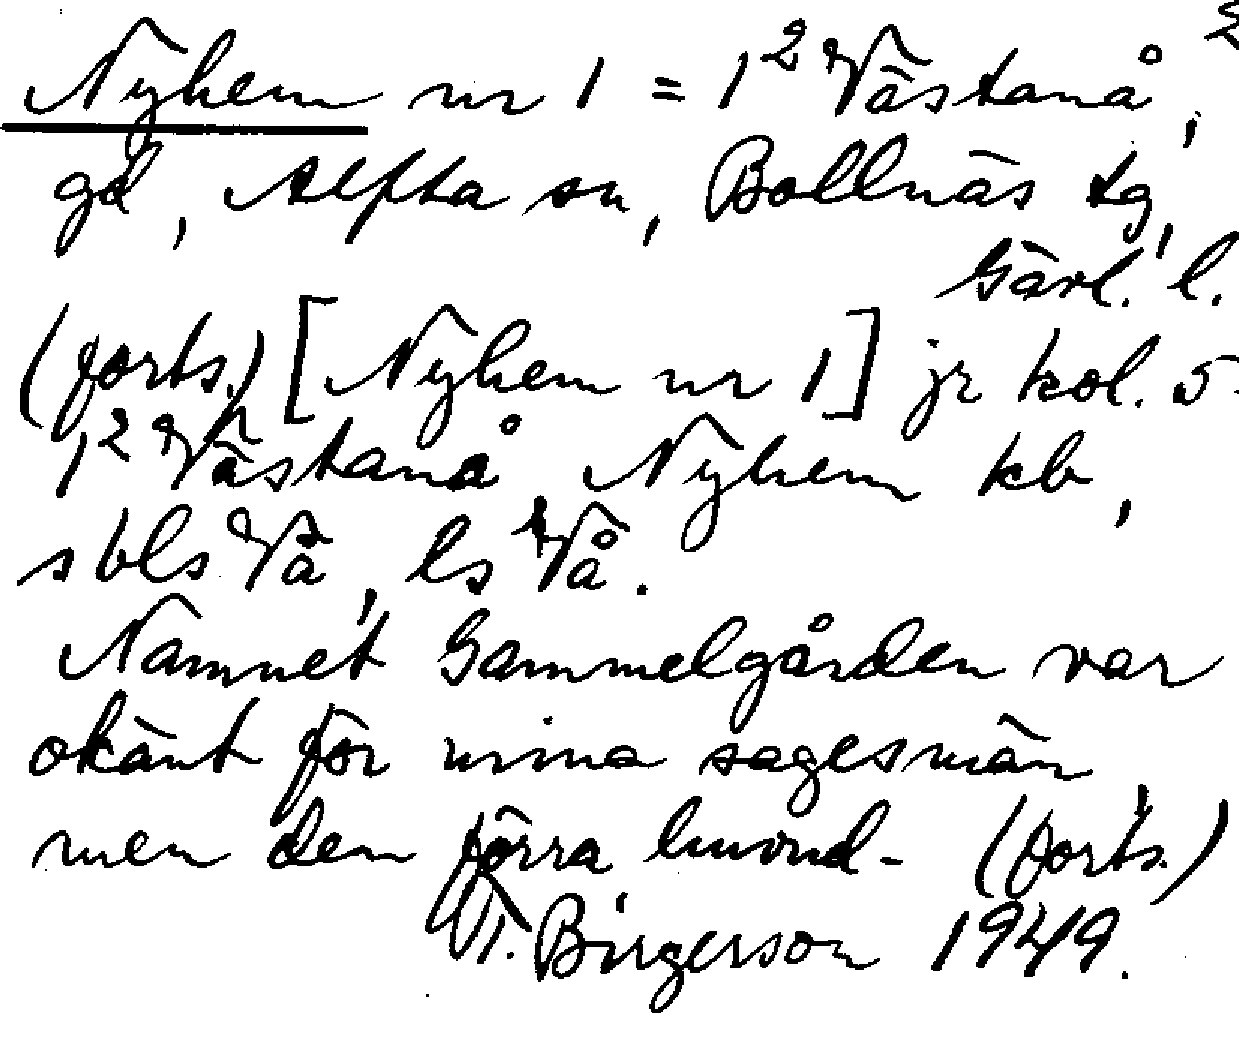 Nyhem nr 1 = 1² Västanå, 2
gd, Alfta sn, Bollnäs tg,
Gävl. l.
(forts.) [Nyhem nr 1] jr kol. 5.
1² Västanå, Nyhem kb,
sbls Vä, ls Vå.
Namnet Gammelgården var
okänt för mina sagesmän,
men den förra huvud- (forts.)
Birgerson 1949.